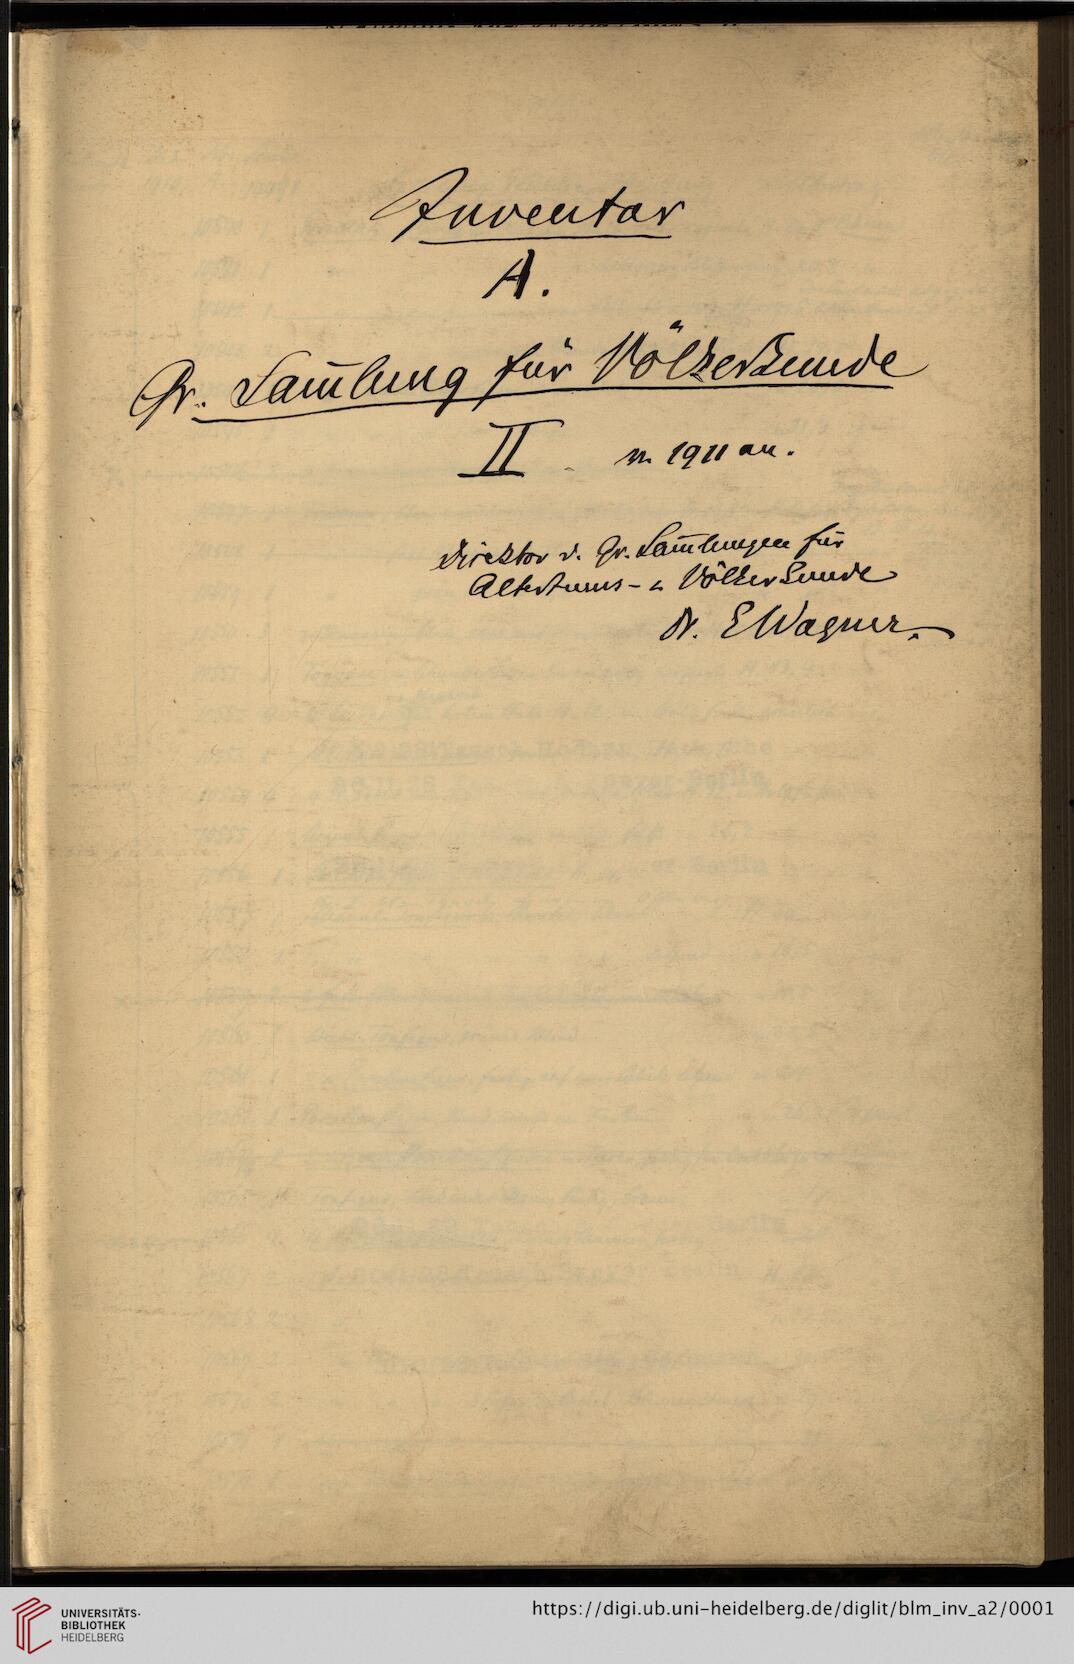 Inventar
A.
Gr. Sam̅lung für Völkerkunde
II von 1911 an.
Direktor d. Gr. Sam̅lungen für
Altertums- u Völkerkunde
Dr. E Wagner.
UNIVERSITÄTS-
BIBLIOTHEK
HEIDELBERG
https://digi.ub.uni-heidelberg.de/diglit/blm_inv_a2/0001